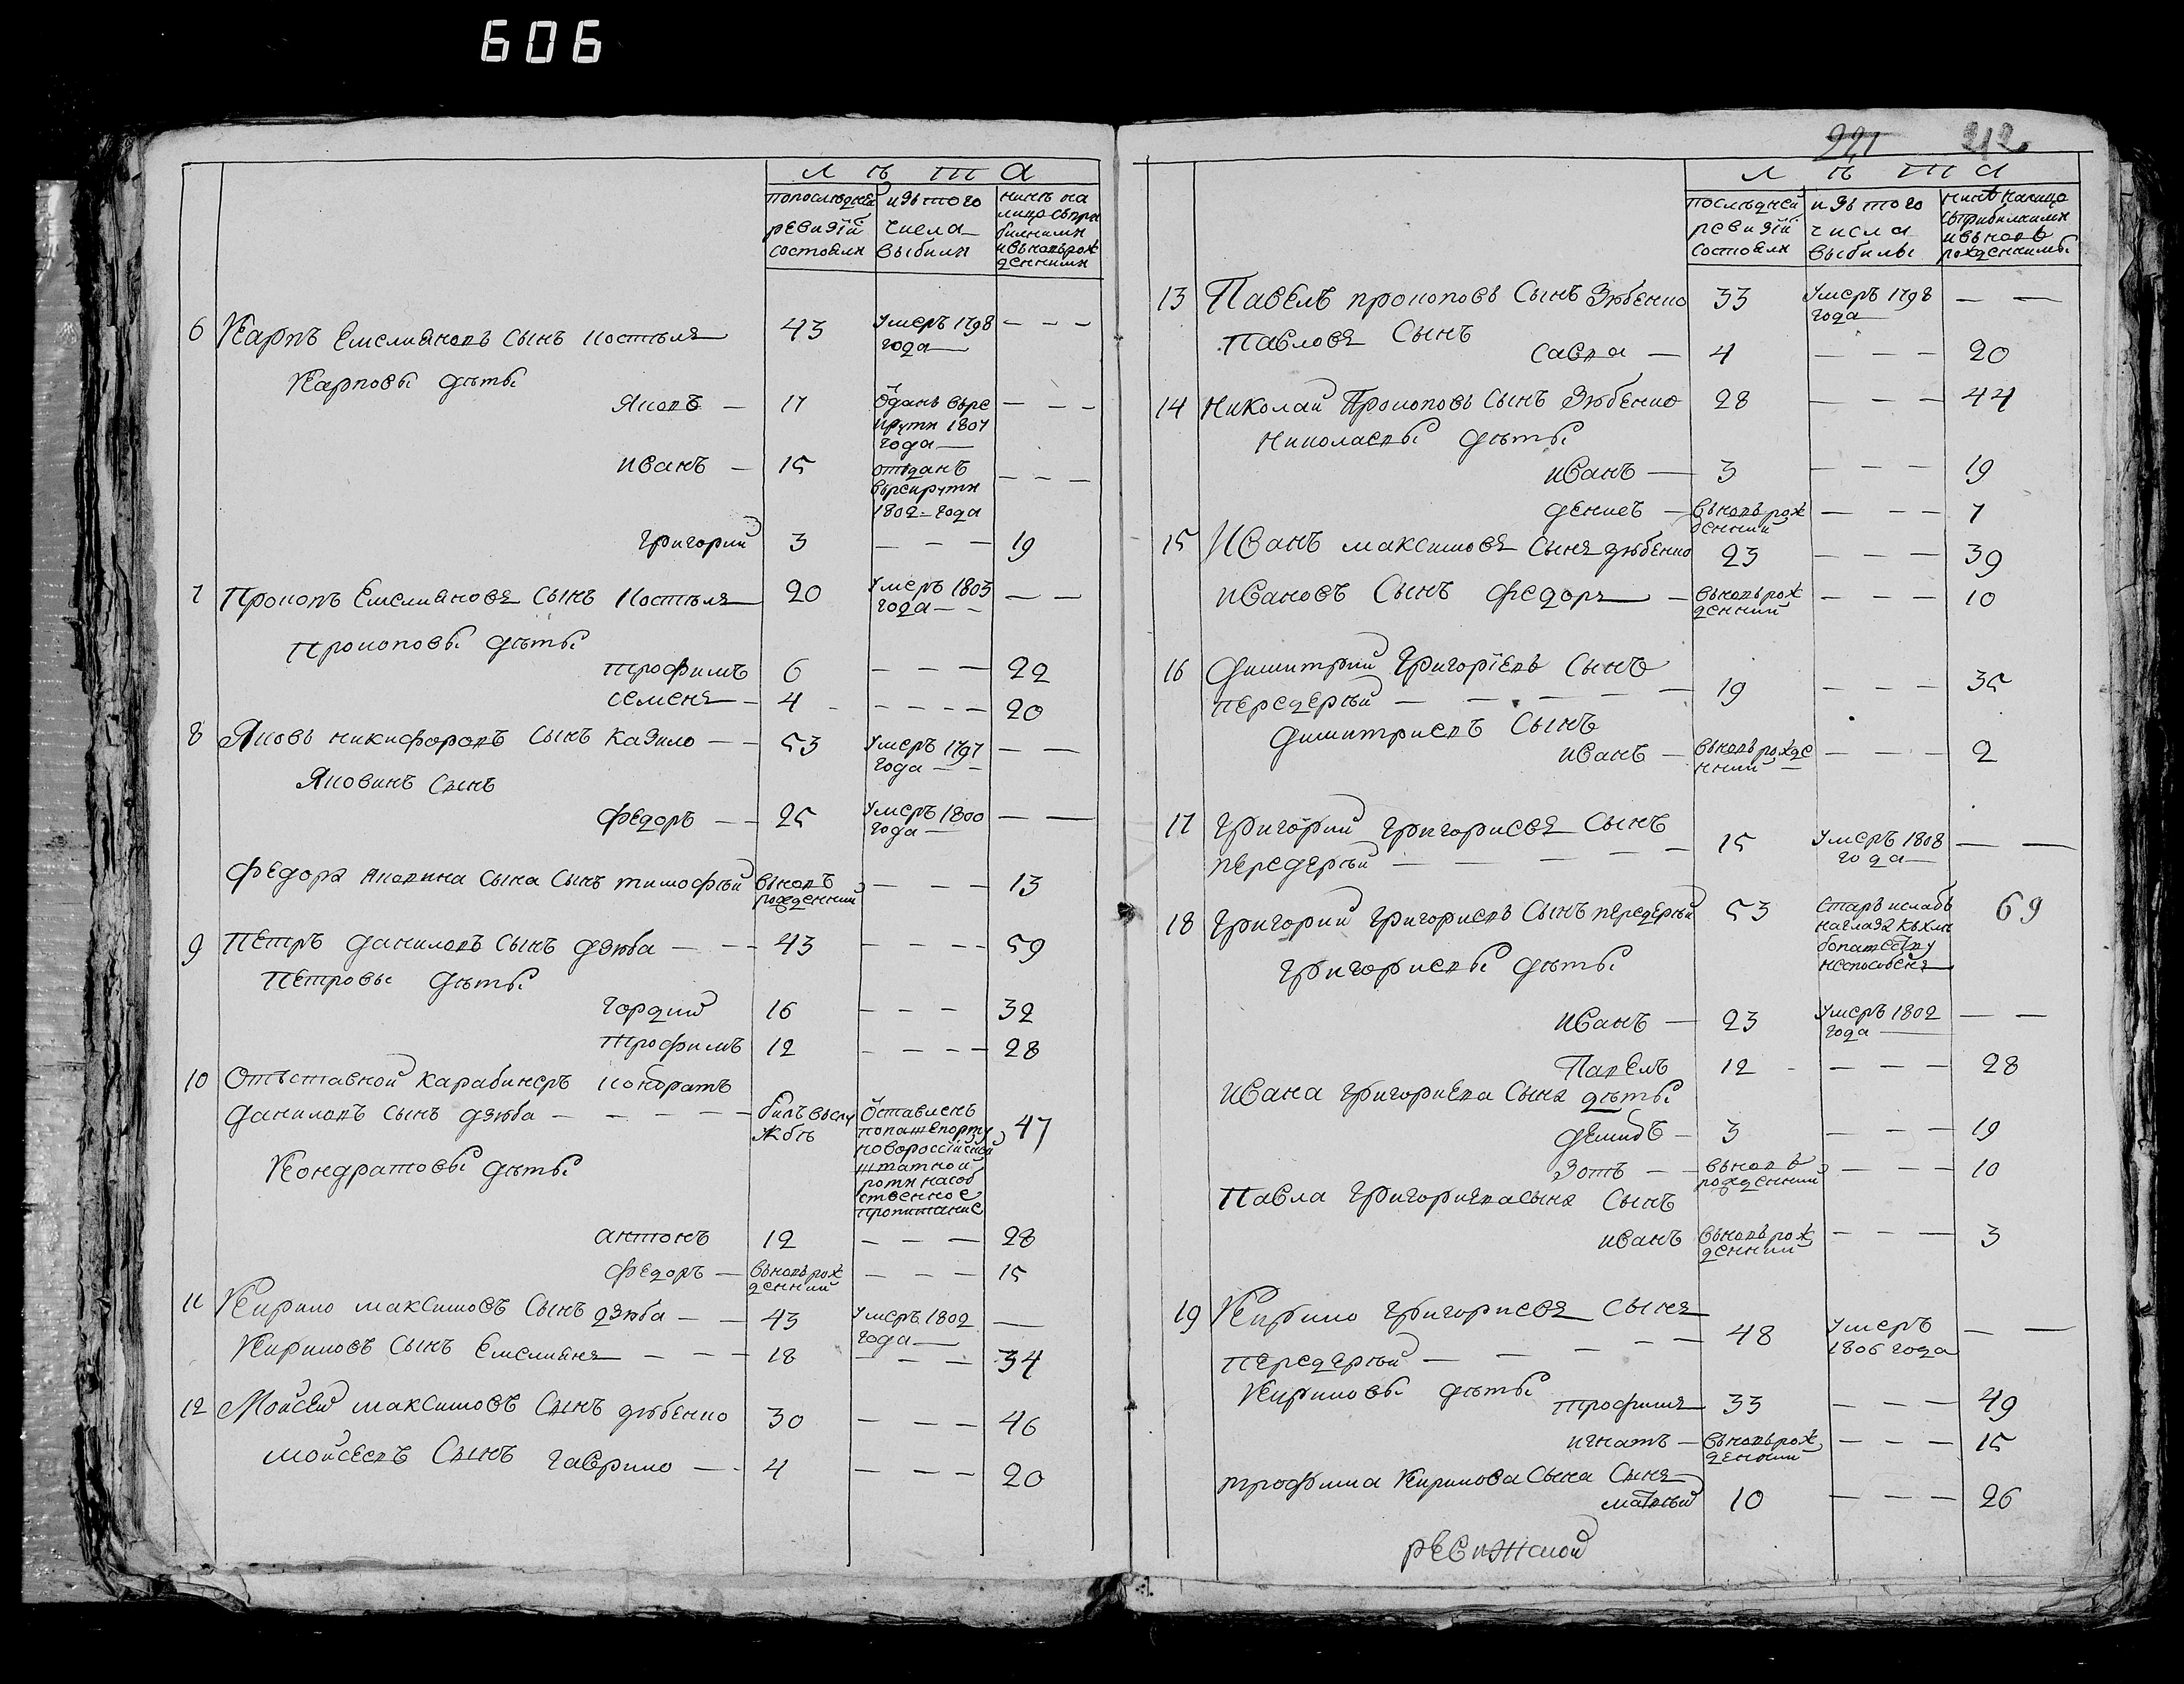 606
Л ѣ т а
попослѣдней ревизїй состояли
изъ того числа выбили
нинѣ на лицо съпри билними ивьновьрож денними
6 Карпъ Емелияновъ Сынъ Костыля 43 Умеръ 1798 года — — —
Карповы дѣты
Яковъ — 17 Ѿданъ върекрути 1807 года — — —
иванъ — 15 отъданъ върекрути 1802 года — — —
Григорий 3 — — — 19
7 Прокопъ Емелияновъ Сынъ Костыля 20 Умеръ 1803 года — —
Прокоповы дѣты
трофимъ 6 — — — 22
Семенъ — 4 — — — — 20
8 Яковъ никифоровъ Сынъ Кадило — — 53 Умеръ 1797 года — —
Яковинъ Сынъ
Федоръ — — 25 Умеръ 1800 года — —
Федора Яковина Сына Сынъ тимофѣй вьновъ рожденний — — — 13
9 Петръ даниловъ Сынъ дзюба — — — 43 — — — — 59
Петровы дѣты
Гордий 16 — — — 32
трофимъ 12 — — — — 28
10 Отъставной карабинеръ кондратъ
даниловъ Сынъ дзюба — — — — — билъ въслу жбѣ Ѿставленъ попашепорту новоросїйской штатной роти насоб ственное пропитание 47
Кондратовы дѣты
антонъ 12 — — — 28
Федоръ — вьновьрож денний — — — 15
11 Кирило максимовъ Сынъ дзюба — — 43 Умеръ 1802 года —
Кириловъ Сынъ Емелиянъ — — — 18 — — — 34
12 Мойсей максимовъ Сынъ дзюбенко 30 — — — 46
мойсеевъ Сынъ гаврило — — 4 — — — 20
221 212
Л ѣ т а
послѣдней ревизїй состояли
изъ того числа выбилы
нинѣ налицо съприбилними ивьновъ рожденнимы
13 Павелъ прокоповъ Сынъ Зюбенко 33 Умеръ 1798 года — —
Павловъ Сынъ
Савва — 4 — — — 20
14 Николай Прокоповъ Сынъ Зюбенко 28 — — — 44
Николаевы дѣты
иванъ — 3 — — — 19
дениеъ — вьновьрож денний — — — 7
15 Иванъ максимовъ Сынъ дзюбенко 23 — — — 39
ивановъ Сынъ Федоръ — вьновьрож денний — — — 10
16 Димитрий Григорїевъ Сынъ
передерѣй — — — — — 19 — — — 35
Димитриевъ Сынъ
иванъ — вьновьрожде нний — — — 2
17 Григорий Григориевъ Сынъ
передерѣй — — — — — 15 Умеръ 1808 года — —
18 Григорий Григориевъ Сынъ передерѣй 53 Старъ ислабъ наглаза къхлѣ бопашеству неспособенъ 69
Григориевы дѣты
иванъ — 23 Умеръ 1802 года — —
Павелъ 12 — — — 28
ивана Григориева Сына дѣты
демидъ — 3 — — — 19
Зотъ — — вьновъ рожденний — — — 10
Павла Григориевасына Сынъ
иванъ вьновьрож денний — — — 3
19 Кирило Григориевъ Сынъ
передерѣй — — — — — 48 Умеръ 1806 года — —
Кириловы дѣты трофимъ 33 — — — 49
игнатъ — вьновьрож денний — — — 15
трофима Кирилова Сына Сынъ
матвѣй 10 — — — 26
ревижской